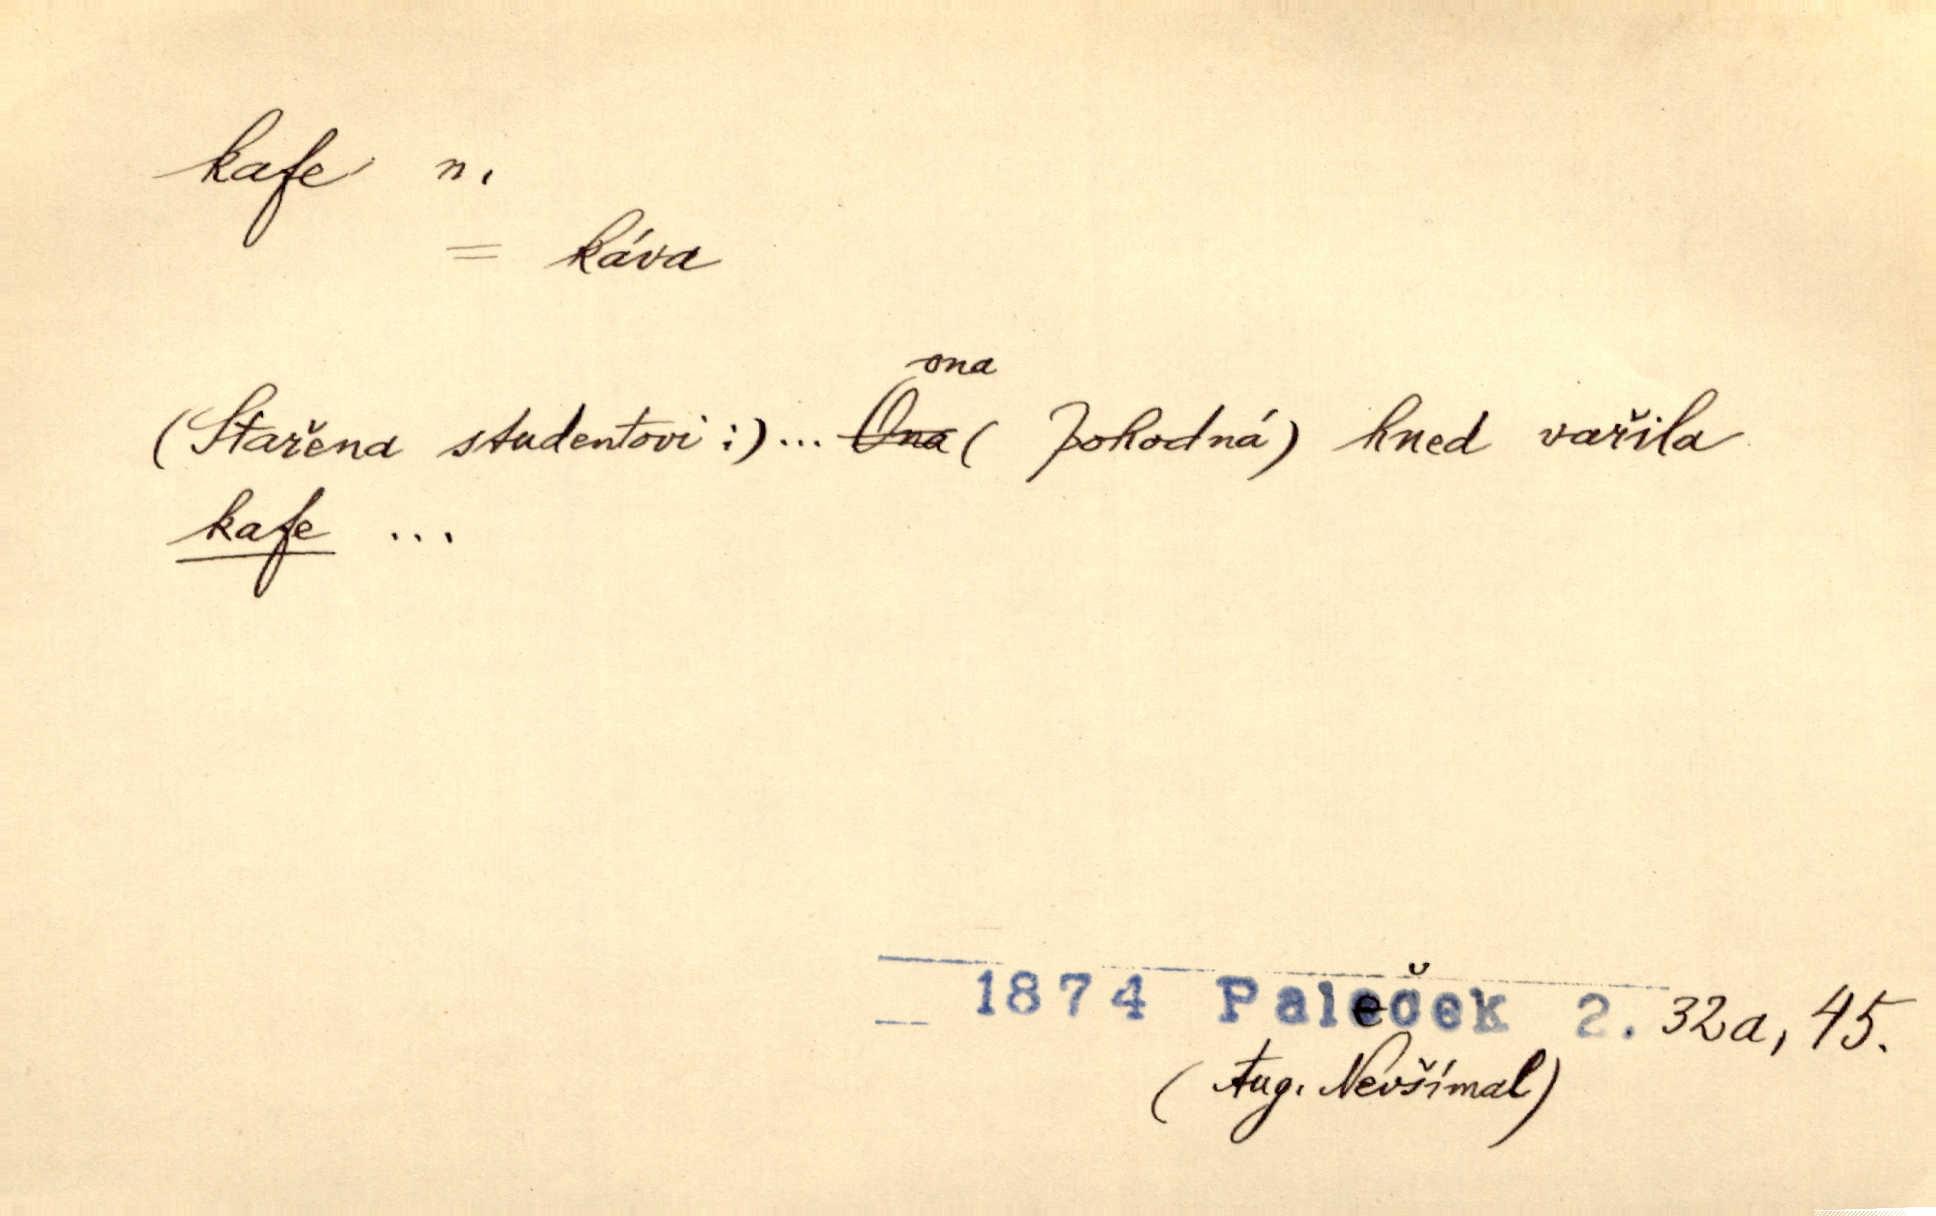 kafe n.
= káva
ona
(Stařena studentovi:)... Ona ( Pohodná) hned vařila
kafe ...
1874 Paleček 2. 32a, 45.
(Aug. Nevšímal)